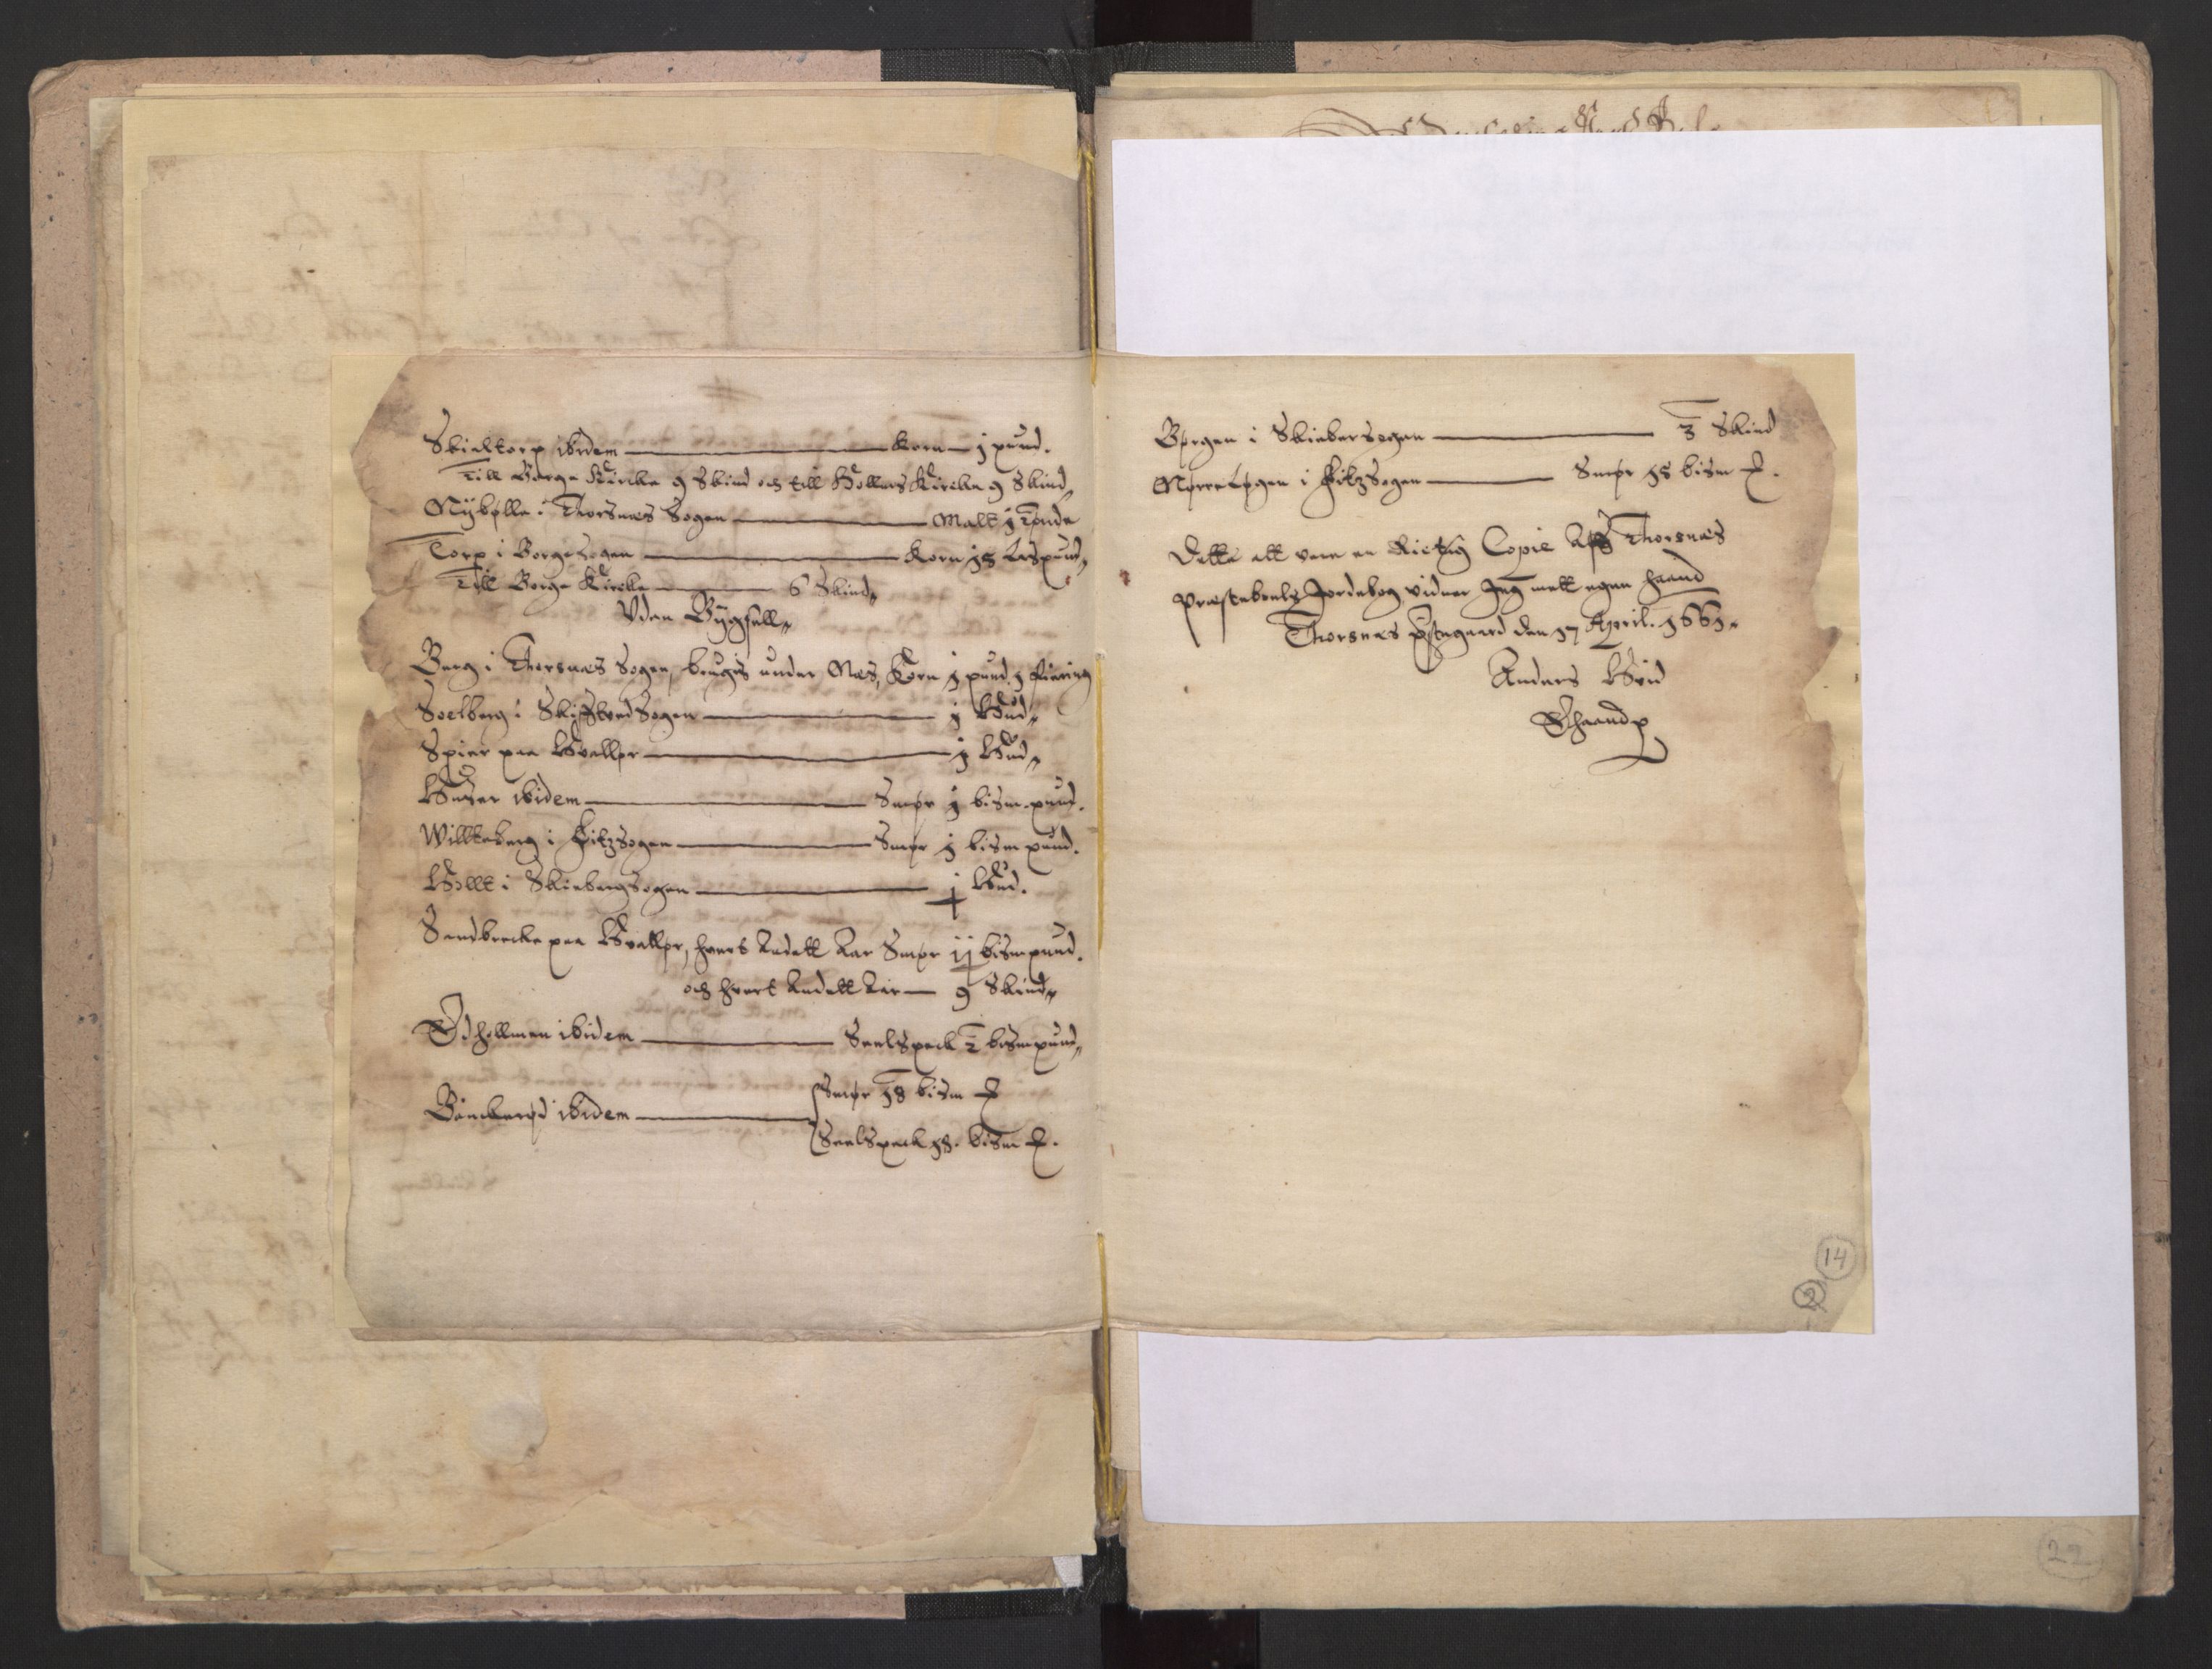 Skieltorp ibidem — Korn — j pund.
Till Borge Kircke 9 Skind och till Hollers Kircke 9 Skind
Nÿbølle i Thorsnæs Sogen — Malt j tønde
Torp i Borge Sogen — Korn 18 Lispund
Till Borge Kircke — 6 Skind
Uden Bÿgsell
Berg i Thorsnæs Sogen, brugis under Næs, Korn j pund j fiering
Soelberg i Skiftved Sogen — j Hud
Spier paa Hvalløer — j Hud
Huser ibidem — Smør j bism. pund.
Willkeberg i Kitzsogen — Smør j bism pund.
Hollt i Skiebergsogen — j Hud.
Sandbrecke paa Hvalløer, hvert Andett Aar Smør ij bismpund.
och hvert Andett Aar — 9 Skind
Ødhollmen ibidem — Seelspeck 2 bismpund
Bänckerød ibidem — Smør 18 bism ℔
Seelspeck 18. bism ℔.
Børgen i Skieberssogen — 3 Skind
Nørre Løgen i Kitzsogen — Smør 18 bism ℔.
Dette att vere en Rictig Copie Aff Thorsnæs
Præstebouls Jordebog vidner Jeg mett egen haand
Thorsnæs Pstegaard den 17 April. 1661.
Anders Hvid
Ehaand
14
2
22